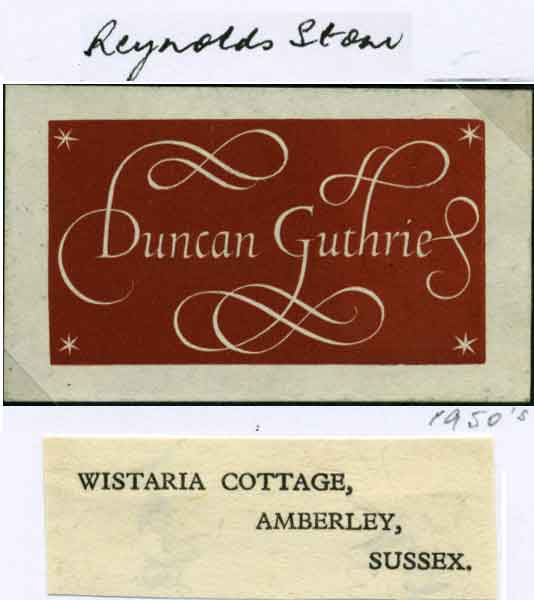 Reynolds Stone
Duncan Guthrie
1950's
WISTARIA COTTAGE,
AMBERLEY,
SUSSEX.